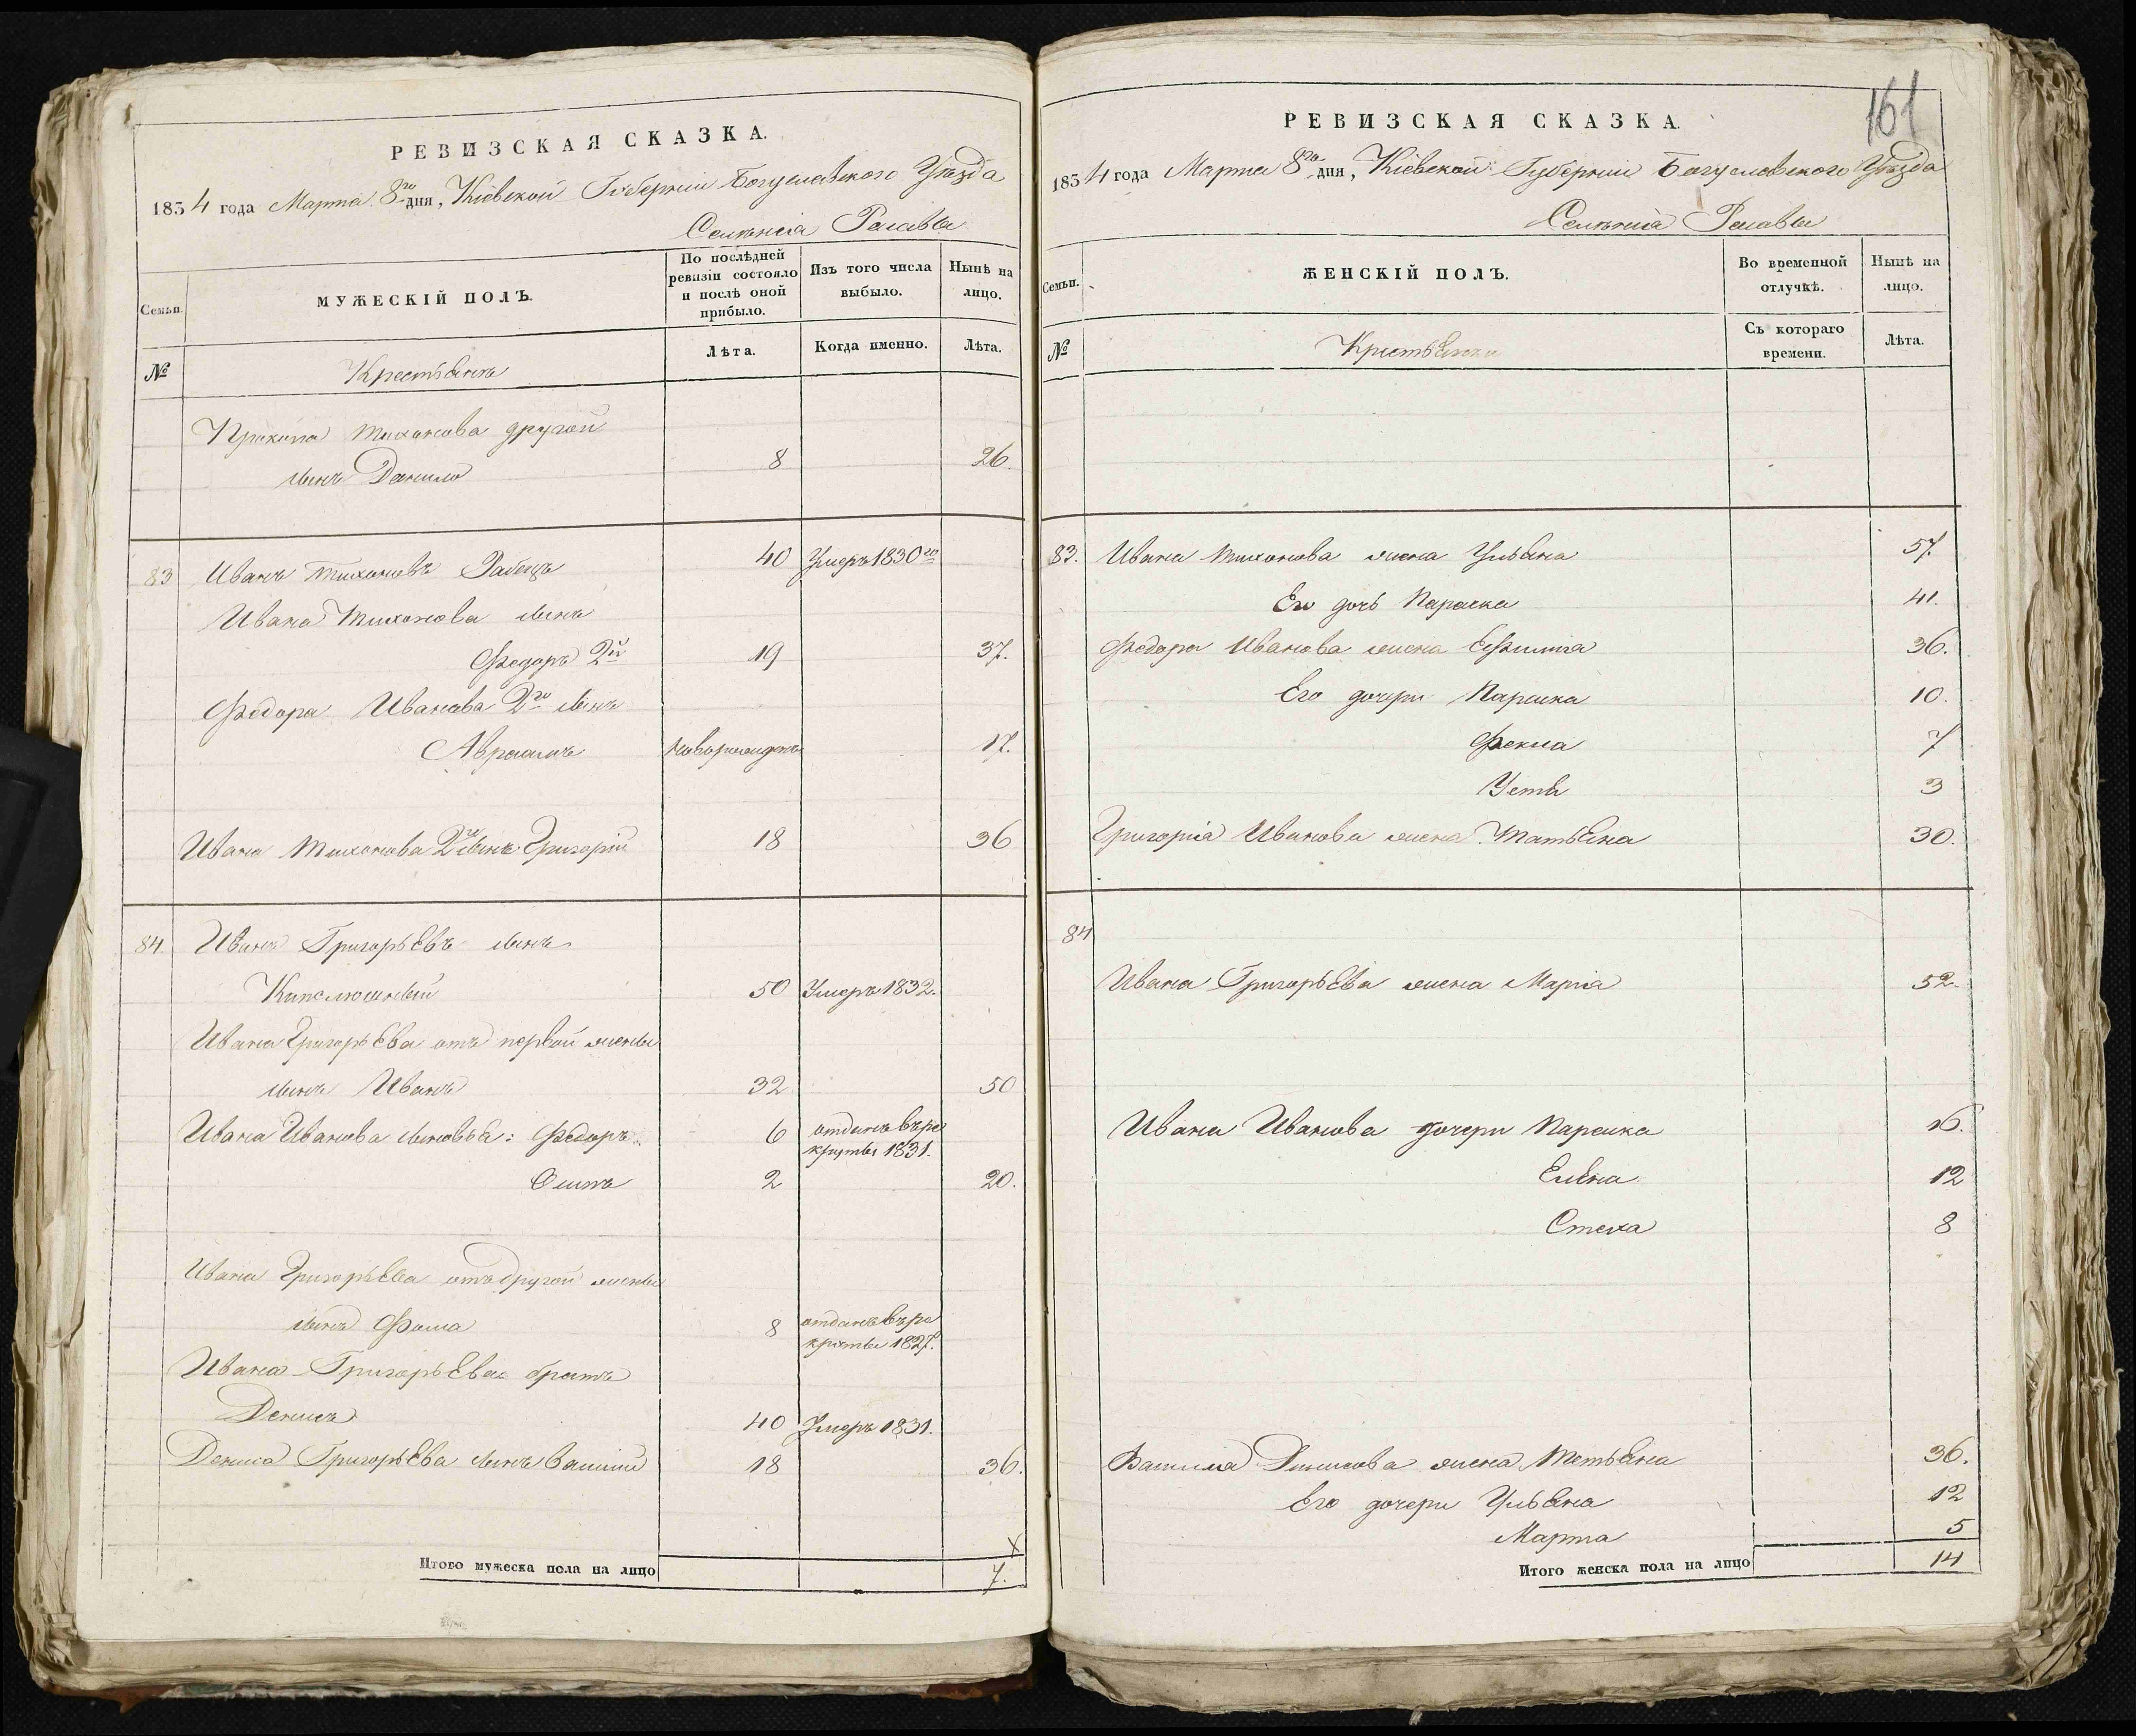 РЕВИЗСКАЯ СКАЗКА.
1834 года Марта 8го дня, Кіевской Губерніи Богуславского Уѣзда
Селенія
Семьи.
МУЖЕСКІЙ ПОЛЪ.
По послѣдней ревизіи состояло и послѣ оной прибыло.
Изъ того числа выбыло.
Нынѣ на лицо.
№
Крестьянъ
Лѣта.
Когда именно.
Лѣта.
Прокопа Тихонова другой
сынъ Данило 8 26.
83 Иванъ Тихоновъ 40 Умеръ 1830го
Ивана Тихонова сынъ
Федоръ 2й 19 37.
Федора Иванова 2го сынъ
Авраамъ новорожденъ 17.
Ивана Тихонова 2й сынъ Григорій 18 36
84. Иванъ Григорьевъ сынъ
50 Умеръ 1832.
Ивана Григорьева отъ первой жены
сынъ Иванъ 32 50
Ивана Иванова сыновья: Федоръ 6 отданъ въ ре
круты 1831.
Осипъ 2 20.
Ивана Григорьева отъ другой жены
сынъ Фома 8 отданъ въ ре
круты 1827.
Ивана Григорьева братъ
Денисъ 40 Умеръ 1831.
Дениса Григорьева сынъ Василій 18 36.
Итого мужеска пола на лицо 7.
161
РЕВИЗСКАЯ СКАЗКА.
1834 года Марта 8го дня, Кіевской Губерніи Богуславского Уѣзда
Селенія
Семьи.
ЖЕНСКІЙ ПОЛЪ.
Во временной отлучкѣ.
Нынѣ на лицо.
№
Крестьянки
Съ котораго времени.
Лѣта.
83. Ивана Тихонова жена Ульяна 57.
Его дочь Параска 41.
Федора Иванова жена Ефимія 36.
Его дочери Параска 10.
Фекла 7
Устя 3
Григорія Иванова жена Татьяна 30.
84
Ивана Григорьева жена Марія 52.
Ивана Иванова дочери Параска 16.
Елена 12
Стеха 8
Василія Денисова жена Тетьяна 36.
Его дочери Ульяна 12
Марта 5
Итого женска пола на лицо 14